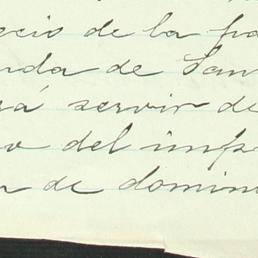 ecio de la pa
nda de San
rá servir de
o del impu
n de domin